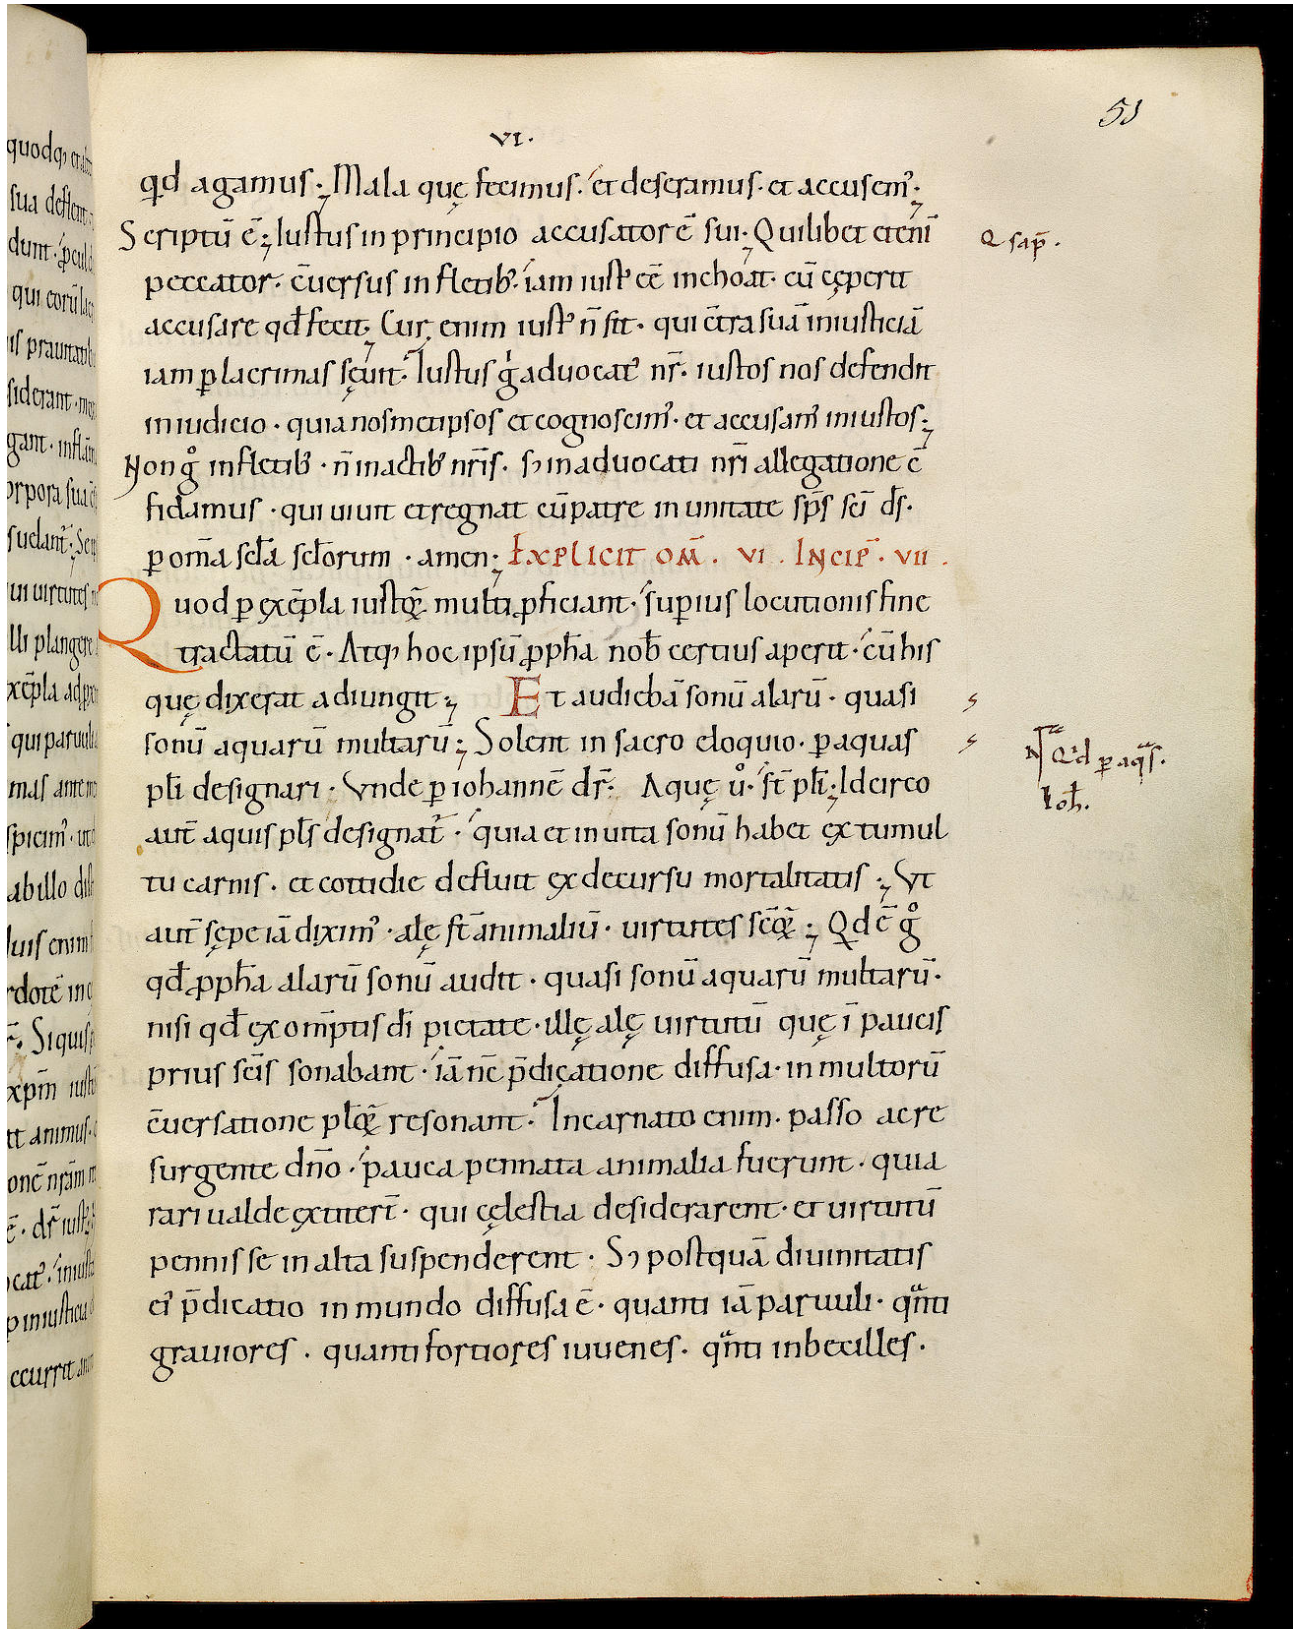 51
VI.
qd agamus; Mala quę fecimus. et deseramus. et accusem᾽;
Scriptū ē; Iustus in principio accusator ē sui; Quilibet etenī
peccator. c̄uersus in fletib᾽. iam iust᾽ eē inchoat. cū cęperit
accusare qđ fecit; Cur enim iust᾽ n̄ sit. qui c̄tra suā iniusticiā
iam ꝑ lacrimas sęuit. Iustus g̊ aduocat᾽ nr̄. iustos nos defendit
in iudicio. quia nosmetipsos et cognoscim᾽. et accusam᾽ iniustos;
Non g̊ in fletib᾽. n̄ in actib᾽ nr̄is. sꝫ in aduocati nr̄i allegatione c̄
fidamus. qui uiuit et regnat cū patre in unitate sp̄s sc̄i d̄s.
ꝑ om̄a scła scłorum. amen; EXPLICIT OM̄. VI. INCIP̄. VII.
Quod ꝑ exēpla iustoꝝ multi ꝓficiant. superius locutionis fine
tractatū ē. Atqꝫ hoc ipsū ꝓpħa nob̄ certius aperit. cū his
quę dixerat adiungit; Et audiebā sonū alarū. quasi
sonū aquarū multarū; Solent in sacro eloquio. ꝑ aquas
płi designari. Vnde ꝑ iohannē dr̄. Aquę ů. st̄ płi; Idcirco
aut̄ aquis płs designat᾽. quia et in uita sonū habet ex tumul
tu carnis. et cottidie defluit ex decursu mortalitatis; Vt
aut̄ sępe iā dixim᾽. alę st̄ animaliū. uirtutes sc̄oꝝ; Qd ē g̊
qđ ꝓpħa alarū sonū audit. quasi sonū aquarū multarū.
nisi qđ ex omp̄tis dī pietate. illę alę uirtutū quę ī paucis
prius sc̄is sonabant. iā nc̄ p̄dicatione diffusa. in multorū
c̄uersatione płoꝝ resonant. Incarnato enim. passo ac re
surgente dn̄o. pauca pennata animalia fuerunt. quia
rari ualde extiter̄t. qui cęlestia desiderarent. et uirtutū
pennis se in alta suspenderent. Sꝫ postquā diuinitatis
ei᾽ p̄dicatio in mundo diffusa ē. quanti iā paruuli. qᷓnti
grauiores. quanti fortiores iuuenes. qᷓnti inbecilles.
Q sap̄.
Qd ꝑ aqᷓs.
Ioħ.